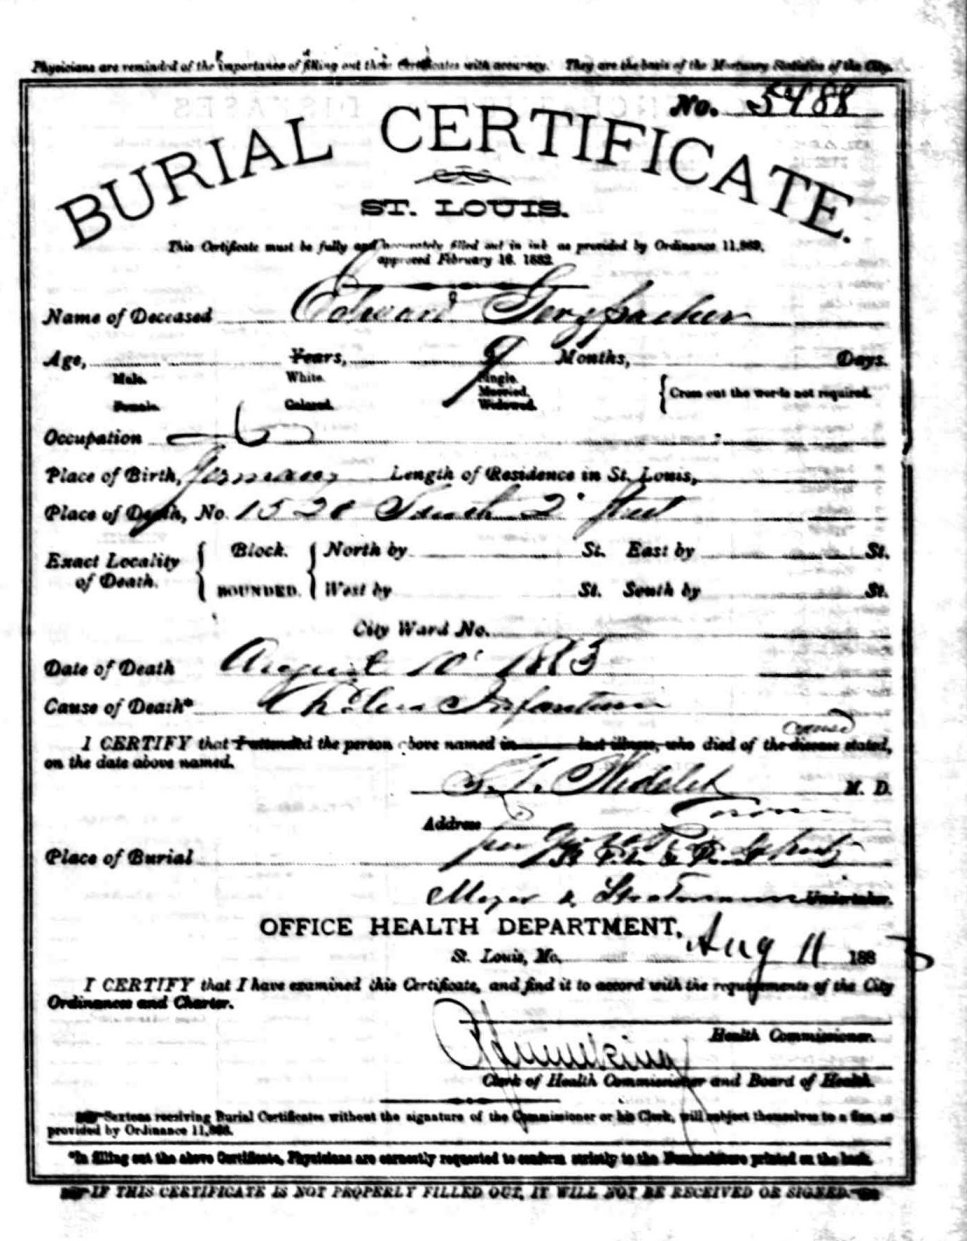 Physicians are reminded of the importance of filling out their Certificates with accuracy. They are the basis of the Mortuary Statistics of the City.
No. 5488
BURIAL CERTIFICATE.
ST. LOUIS.
This Certificate must be fully and accurately filled out in ink as provided by Ordinance 11,969,
approved February 16. 1882.
Name of Deceased Edward
Age, Years, 9 Months, Days.
Male. White. Single.
Married. { Cross out the words not required.
Female. Colored. Widowed.
Occupation
Place of Birth, Germany Length of Residence in St. Louis,
Place of Death, No. 1520 South 2 Street
Exact Locality of Death. { Block. BOUNDED. { North by St. East by St.
West by St. South by St.
City Ward No.
Date of Death August 10 1883
Cause of Death* Cholera Infantum
I CERTIFY that I attended the person above named in last illness, who died of the disease stated,
on the date above named.
M. D.
Address
Place of Burial
Meyer & Undertaker.
OFFICE HEALTH DEPARTMENT,
St. Louis, Mo. Aug 11 1883
I CERTIFY that I have examined this Certificate, and find it to accord with the requirements of the City
Ordinances and Charter.
Health Commissioner.
Clerk of Health Commissioner and Board of Health.
Sextons receiving Burial Certificates without the signature of the Commissioner or his Clerk, will subject themselves to a fine, as
provided by Ordinance
*In filling out the above Certificate, Physicians are earnestly requested to conform strictly to the Nomenclature printed on the back.
IF THIS CERTIFICATE IS NOT PROPERLY FILLED OUT, IT WILL NOT BE RECEIVED OR SIGNED.